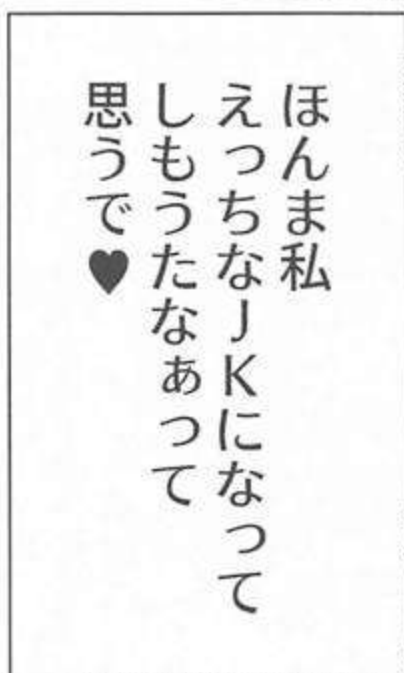 ほんま私
えっちなJKになって
しもうたなぁって
思うで♥